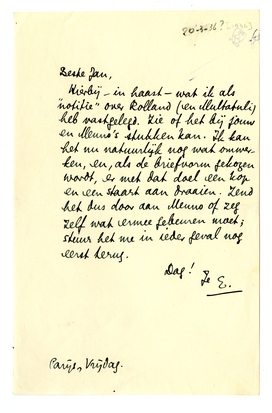 20-3-36?
Beste Jan,
Hierbij – in haast – wat ik als
"notitie" over Rolland (en Multatuli)
heb vastgelegd. Zie of het bij jouw
en Menno's stukken kan. Ik kan
het nu natuurlijk nog wat omwer-
ken, en, als de briefvorm gekozen
wordt, er met dat doel een kop
en een staart aan draaien. Zend
het dus door aan Menno of zeg
zelf wat ermee gebeuren moet;
stuur het me in ieder geval nog
eerst terug.
Dag! Je E.
Parijs, Vrijdag.